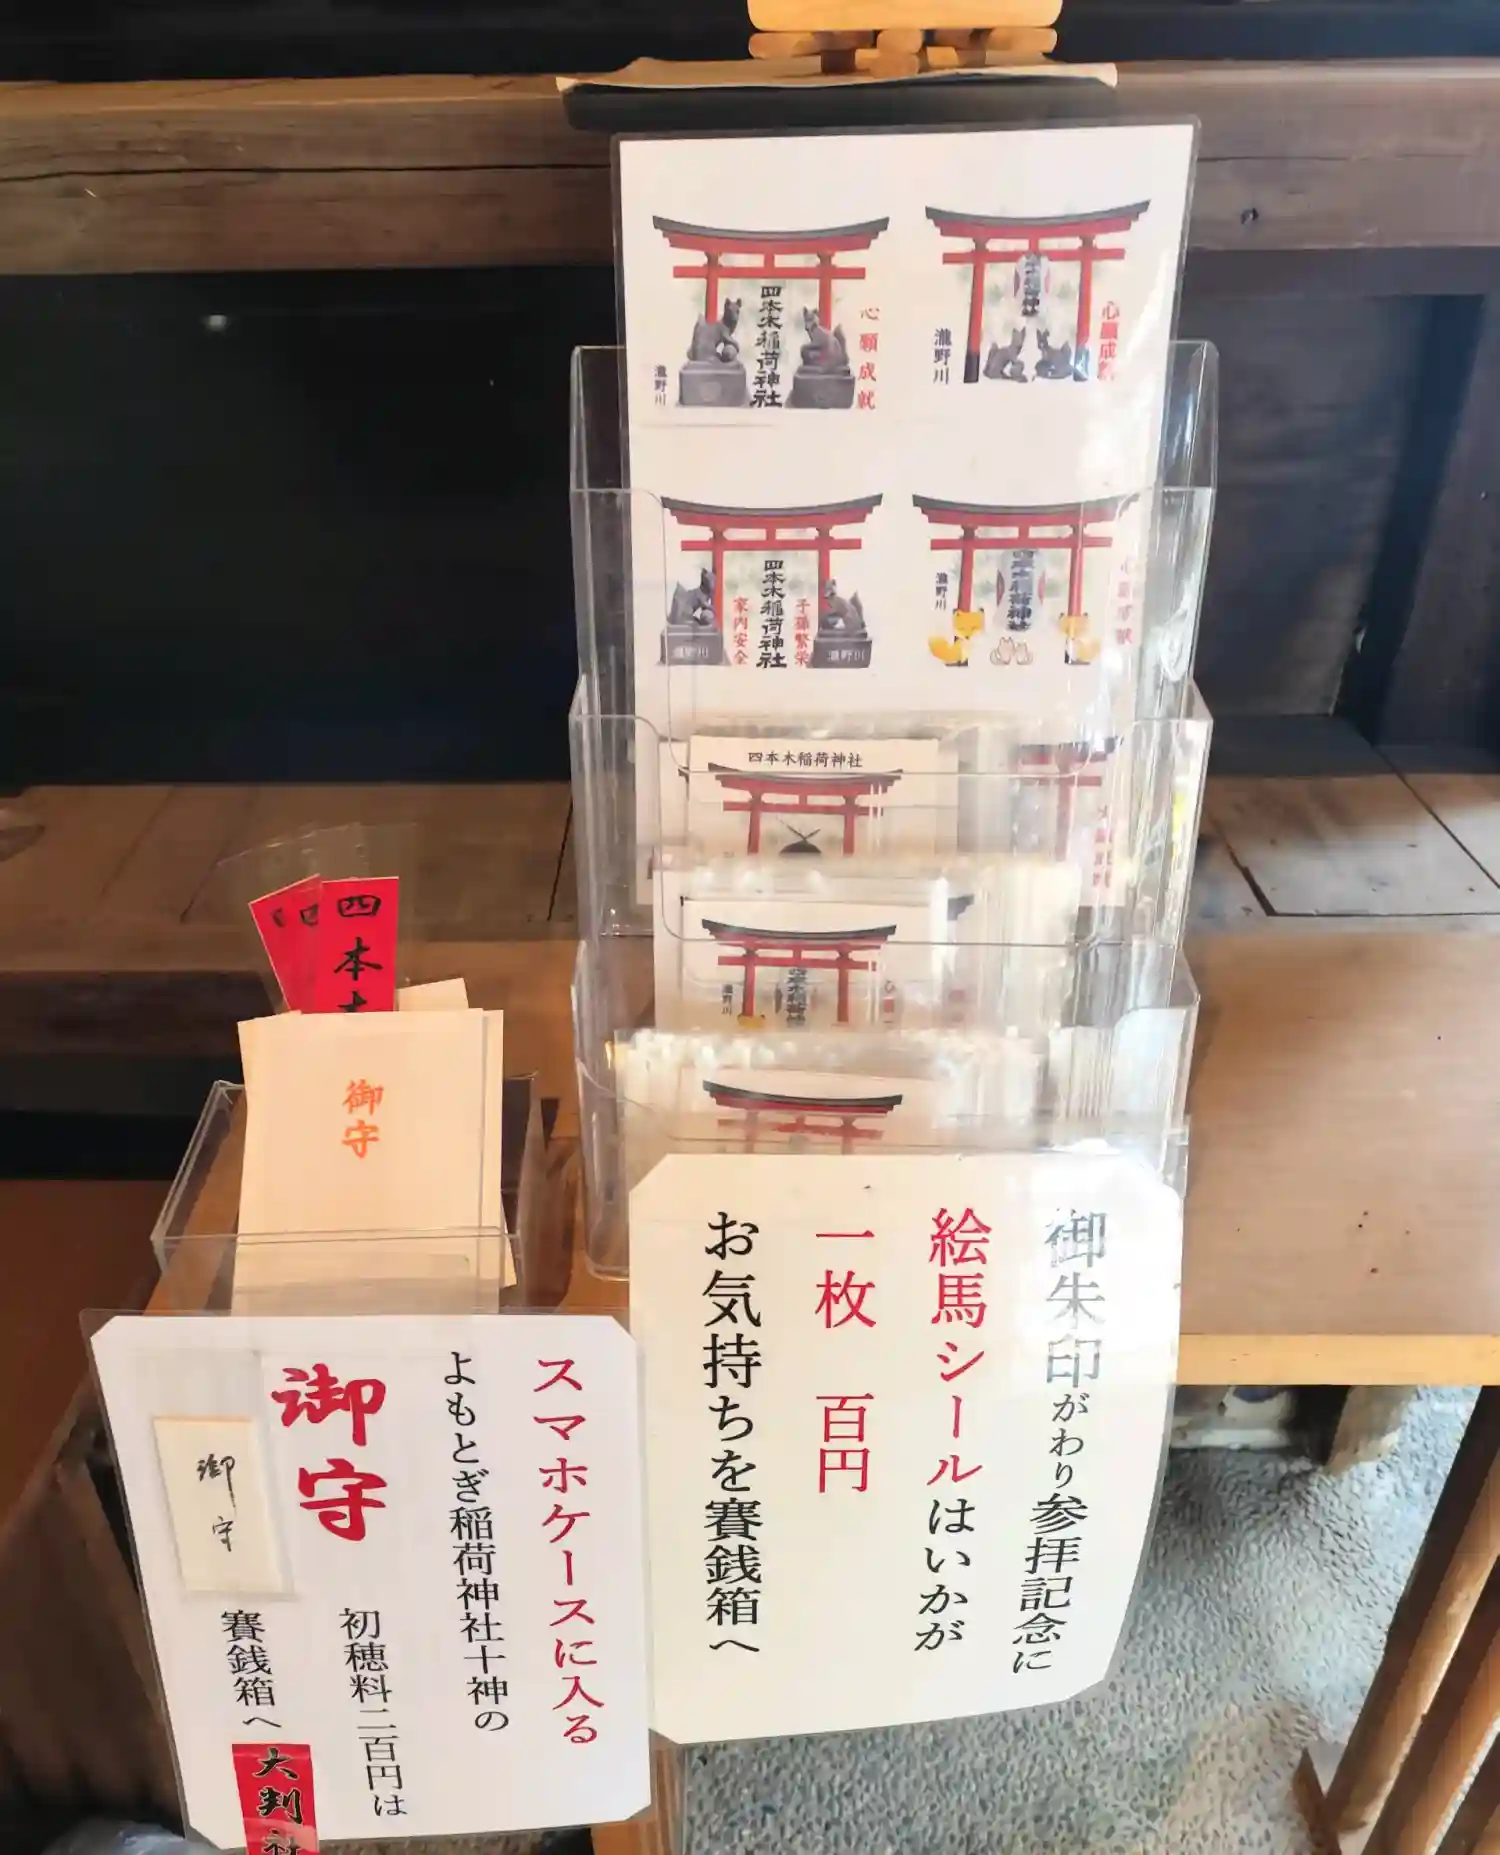 四本木稲荷神社
心願成就
瀧野川
四本木稲荷神社
心願成就
瀧野川
四本木稲荷神社
子孫繁栄
家内安全
瀧野川
瀧野川
四本木稲荷神社
瀧野川
四本木稲荷神社
瀧野川
四本木
御守
御朱印がわり参拝記念に
絵馬シールはいかが
一枚 百円
お気持ちを賽銭箱へ
スマホケースに入る
よもとぎ稲荷神社十神の
御守
初穂料二百円は
賽銭箱へ
御守
大判社